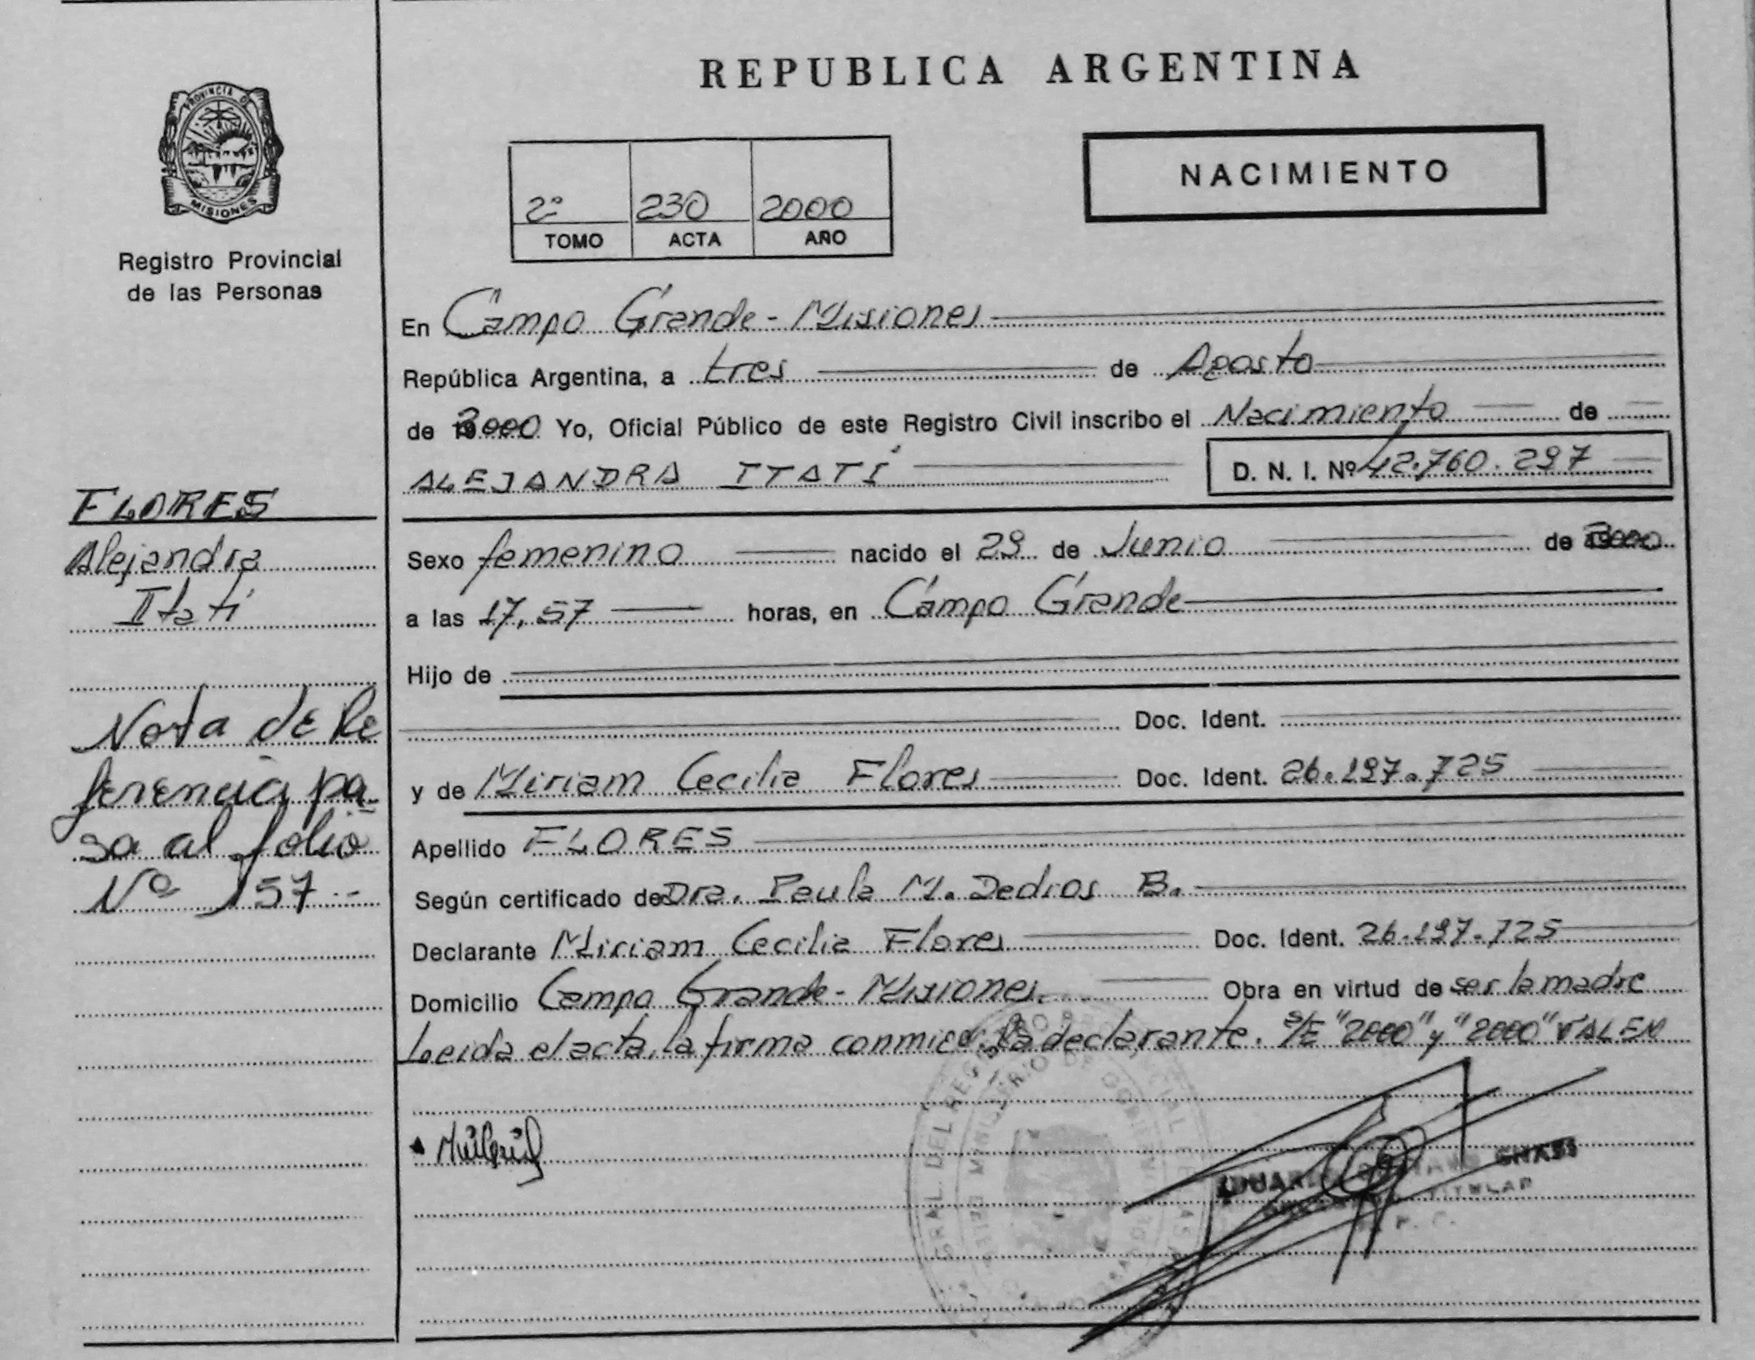 REPUBLICA ARGENTINA
PROVINCIA DE
MISIONES
Registro Provincial
de las Personas
NACIMIENTO
2º 230 2000
TOMO ACTA AÑO
En Campo Grande - Misiones
República Argentina, a tres de Agosto
de 2000 Yo, Oficial Público de este Registro Civil inscribo el Nacimiento de
ALEJANDRA ITATÍ D. N. I. Nº 42.760.297
Sexo femenino nacido el 29 de Junio de 2000
a las 17,57 horas, en Campo Grande
Hijo de
Doc. Ident.
y de Miriam Cecilia Flores Doc. Ident. 26.197.725
Apellido FLORES
Según certificado de Dra. Paula M. Dedios B.
Declarante Miriam Cecilia Flores Doc. Ident. 26.197.725
Domicilio Campo Grande - Misiones. Obra en virtud de ser la madre
Leida el acta, la firma conmigo la declarante. S/E "2000" y "2000" VALEN
FLORES
Alejandra
Itatí
Nota de Re
ferencia pa-
sa al folio
Nº 157-
TITULAR